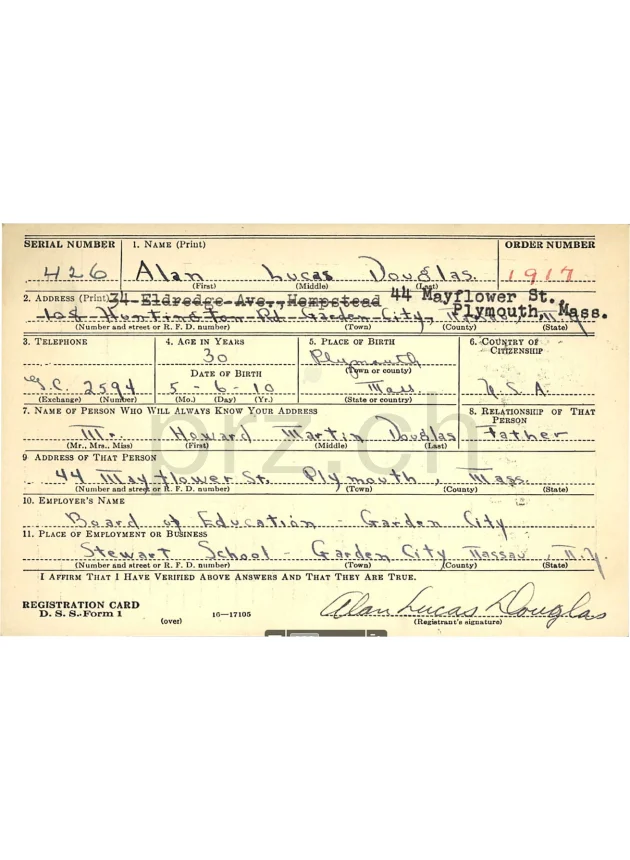 SERIAL NUMBER 1. NAME (Print) ORDER NUMBER
426 Alan Lucas Douglas. 1917
(First) (Middle) (Last)
2. ADDRESS (Print) 34 Eldredge Ave., Hempstead 44 Mayflower St.,
Plymouth, Mass.
108 Huntington Rd Garden City, Nassau, N.Y.
(Number and street or R. F. D. number) (Town) (County) (State)
3. TELEPHONE 4. AGE IN YEARS 5. PLACE OF BIRTH 6. COUNTRY OF CITIZENSHIP
30 Plymouth
DATE OF BIRTH (Town or county)
G.C. 2594 5 - 6 - 10 Mass. U.S.A.
(Exchange) (Number) (Mo.) (Day) (Yr.) (State or country)
7. NAME OF PERSON WHO WILL ALWAYS KNOW YOUR ADDRESS 8. RELATIONSHIP OF THAT PERSON
Mr. Howard Martin Douglas Father
(Mr., Mrs., Miss) (First) (Middle) (Last)
9 ADDRESS OF THAT PERSON
44 Mayflower St. Plymouth, Mass.
(Number and street or R. F. D. number) (Town) (County) (State)
10. EMPLOYER'S NAME
Board of Education - Garden City
11. PLACE OF EMPLOYMENT OR BUSINESS
Stewart School - Garden City Nassau, N.Y.
(Number and street or R. F. D. number) (Town) (County) (State)
I AFFIRM THAT I HAVE VERIFIED ABOVE ANSWERS AND THAT THEY ARE TRUE.
REGISTRATION CARD
D. S. S. Form 1 16—17105 Alan Lucas Douglas
(over) (Registrant's signature)
prz.ch